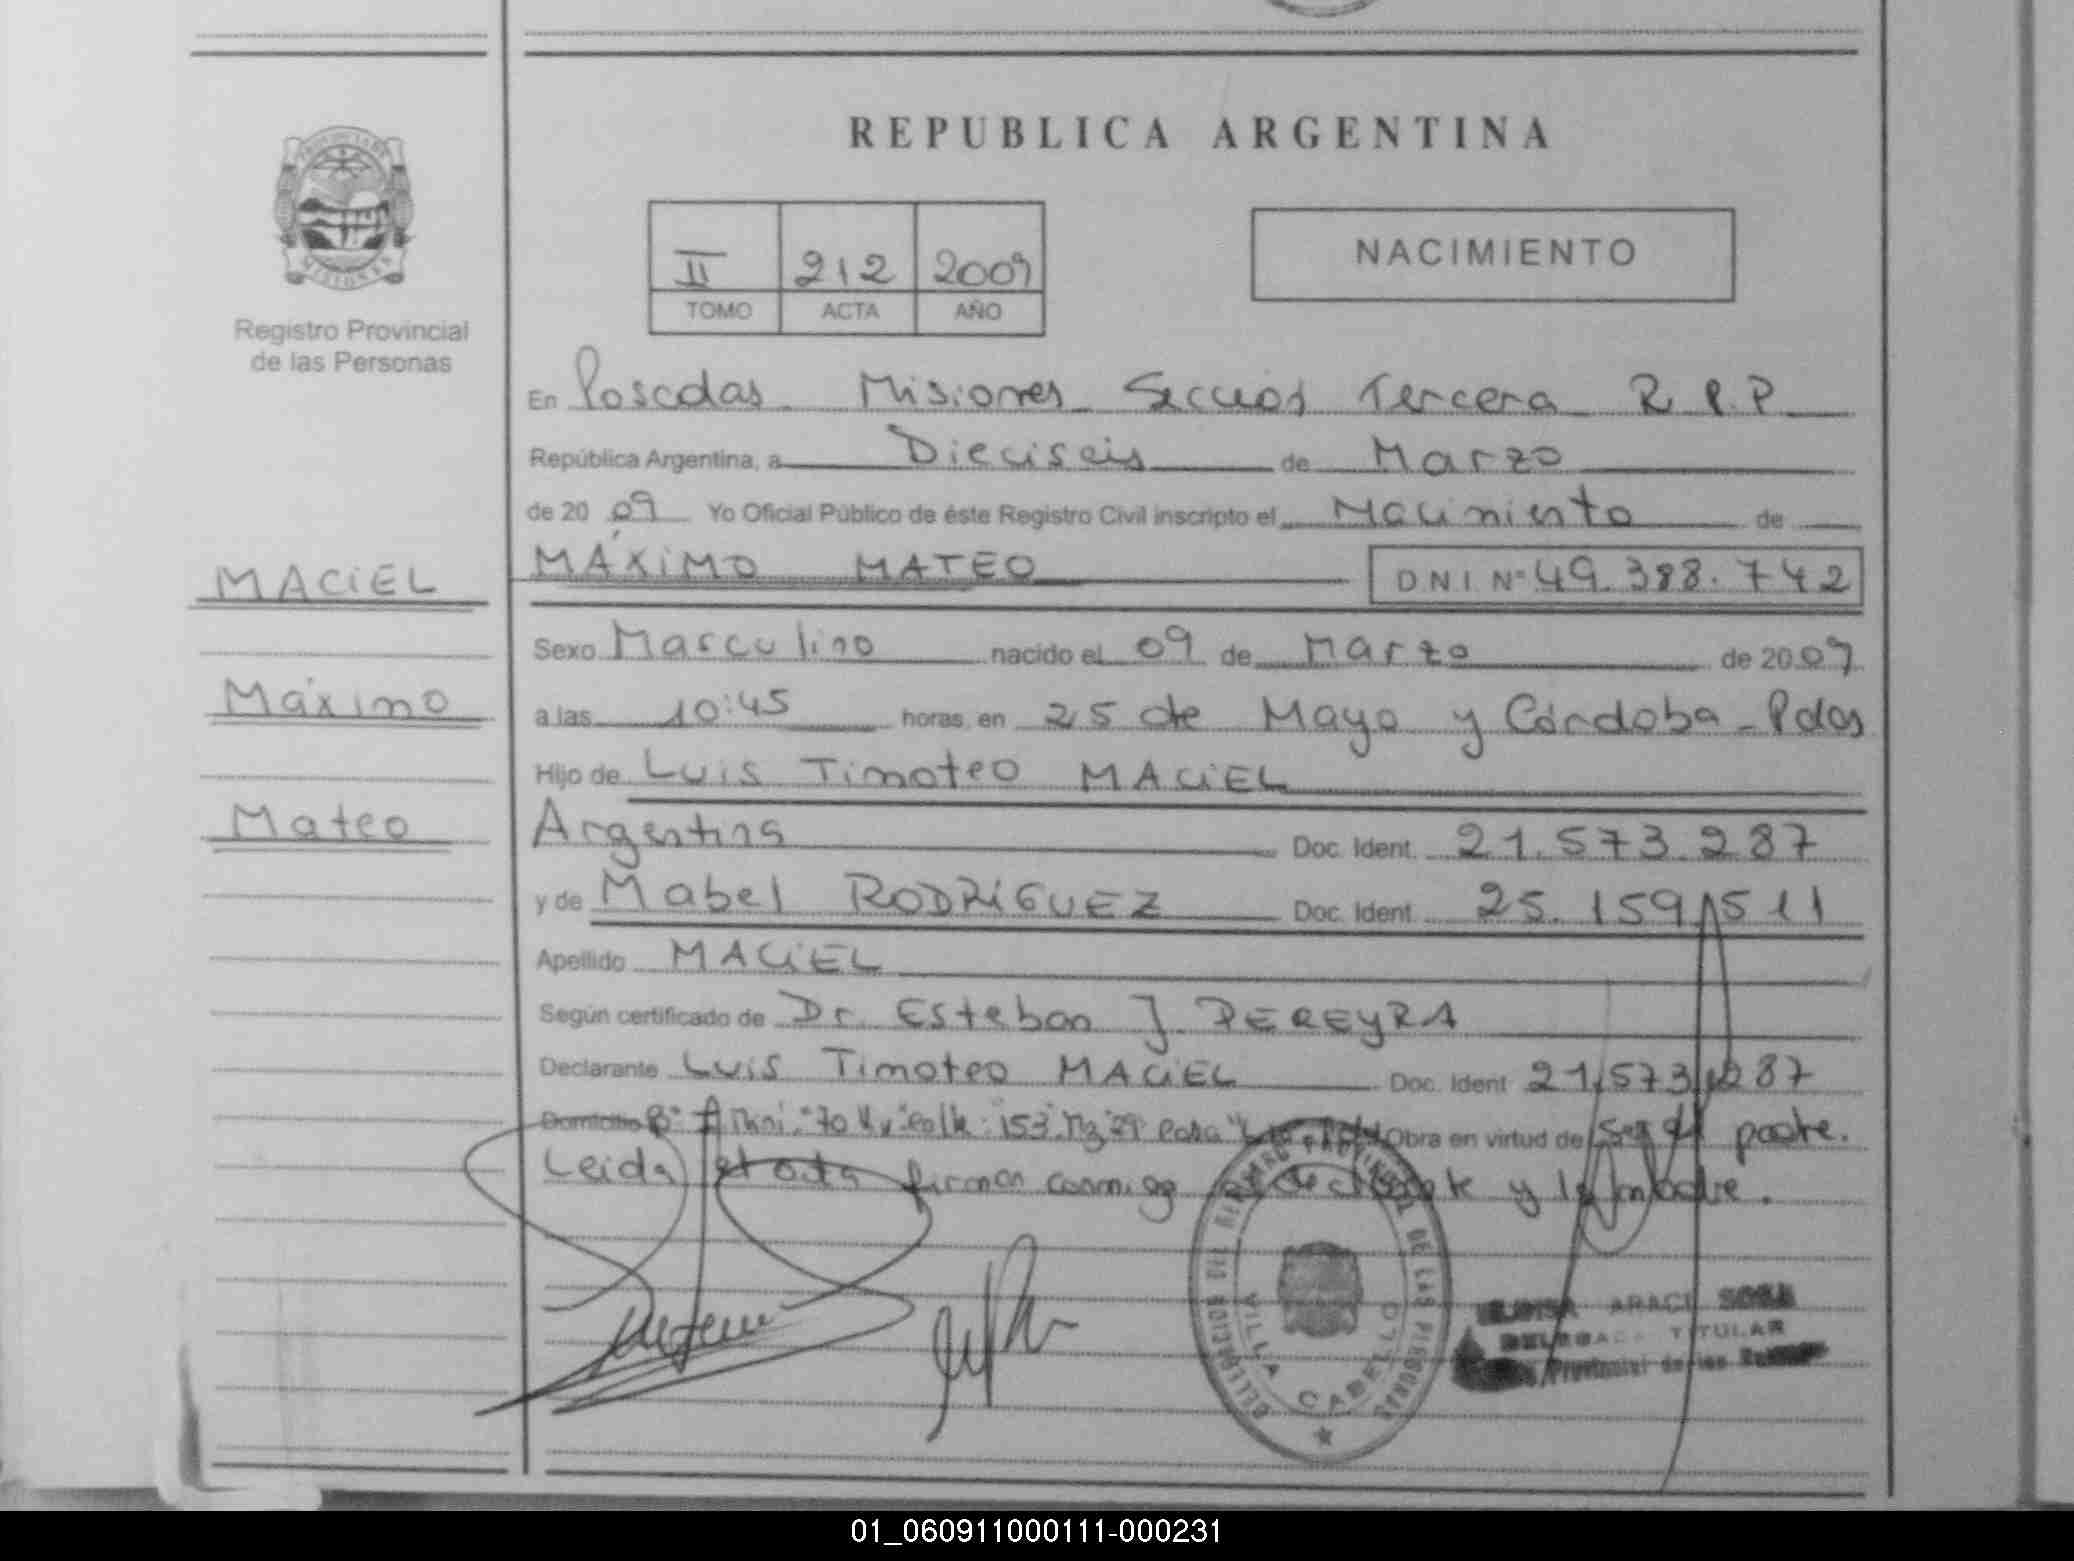 REPUBLICA ARGENTINA
II 212 2009
TOMO ACTA AÑO
NACIMIENTO
MISIONES
Registro Provincial
de las Personas
En Posadas Misiones Sección Tercera R.P.P
República Argentina, a Dieciseis de Marzo
de 20 09 Yo Oficial Público de éste Registro Civil inscripto el Nacimiento de
MÁXIMO MATEO DNI Nº 49.388.742
MACIEL
Máximo
Mateo
Sexo Masculino nacido el 09 de Marzo de 2009
a las 10:45 horas, en 25 de Mayo y Córdoba - Pdas
Hijo de Luis Timoteo MACIEL
Argentina Doc. Ident. 21.573.287
y de Mabel RODRIGUEZ Doc. Ident. 25.159.511
Apellido MACIEL
Según certificado de Dr. Esteban J. PEREYRA
Declarante Luis Timoteo MACIEL Doc. Ident 21.573.287
Domicilio Bº Obra en virtud de ser el padre.
Leida el acta firman conmigo el declarante y la madre.
DELEGACION DEL REGISTRO PROVINCIAL DE LAS PERSONAS
VILLA CABELLO
ARACI SOSA
DELEGADA TITULAR
Provincial de las
01_060911000111-000231